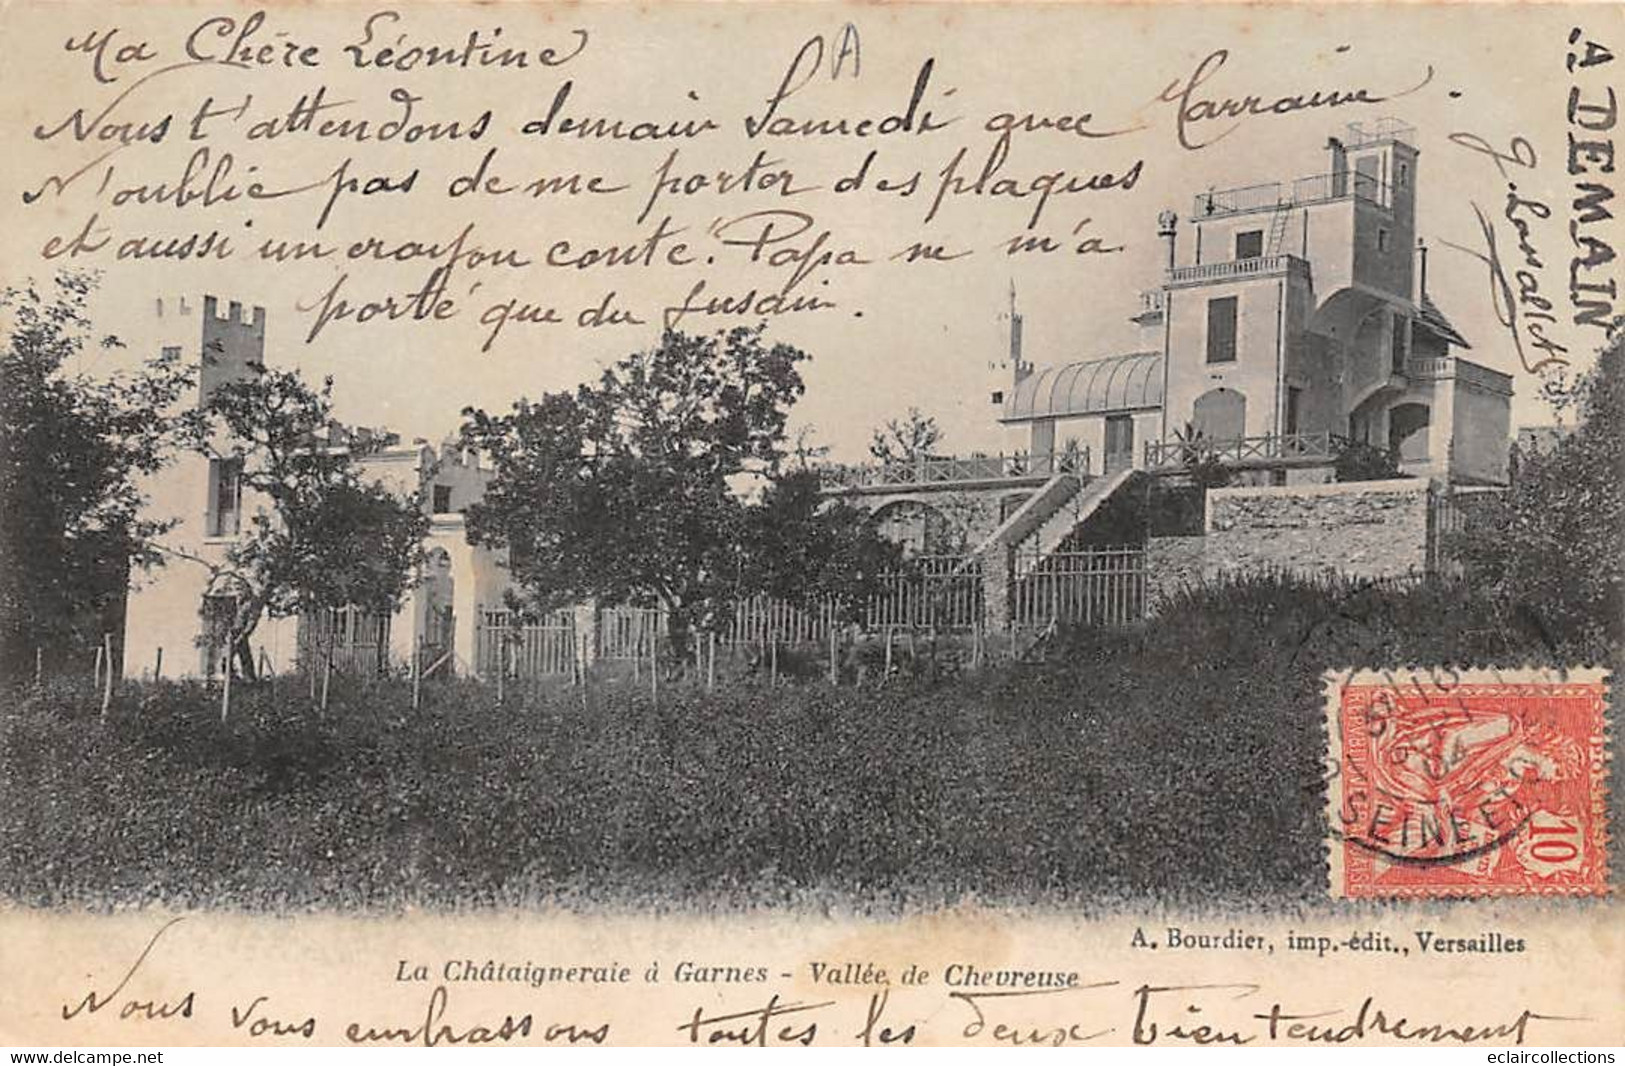 Ma Chère Léontine
A
Nous t'attendons demain Samedi avec Marraine.
N'oublie pas de me porter des plaques
et aussi un crayon conté. Papa ne m'a
porté que du fusain.
A DEMAIN
SEINE ET
10
A. Bourdier, imp.-édit., Versailles
La Châtaigneraie à Garnes - Vallée de Chevreuse
Nous vous embrassons toutes les deux bien tendrement
eclaircollections
16 / 52